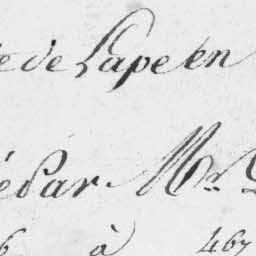 de Lapeen
é Par Mr
6 à 467